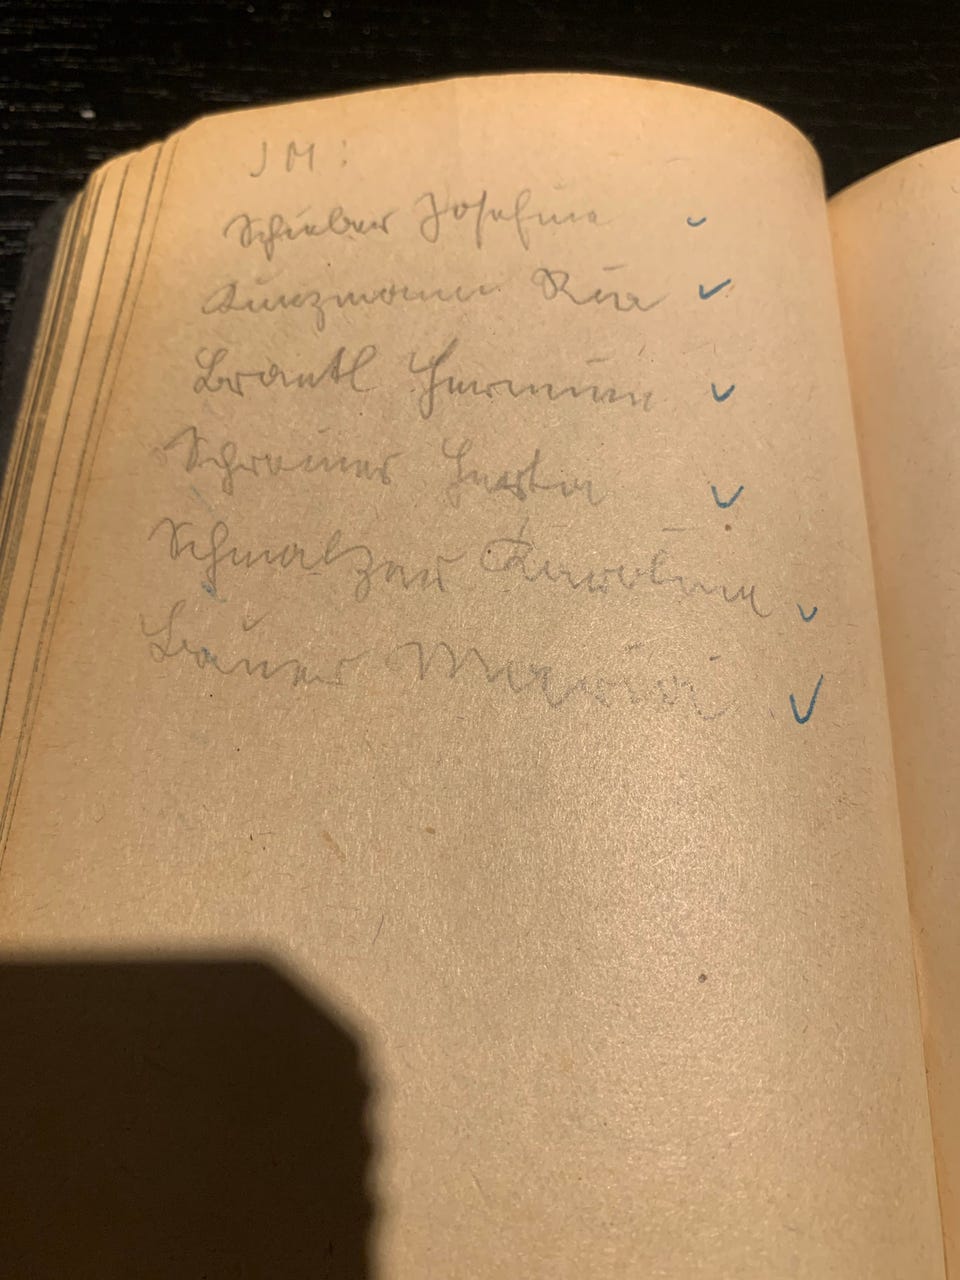 JM:
Schieber Josefine
Kunzmann
Brantl Hermine
Schreiner Herta
Schmalzer Karoline
Bauer Maria